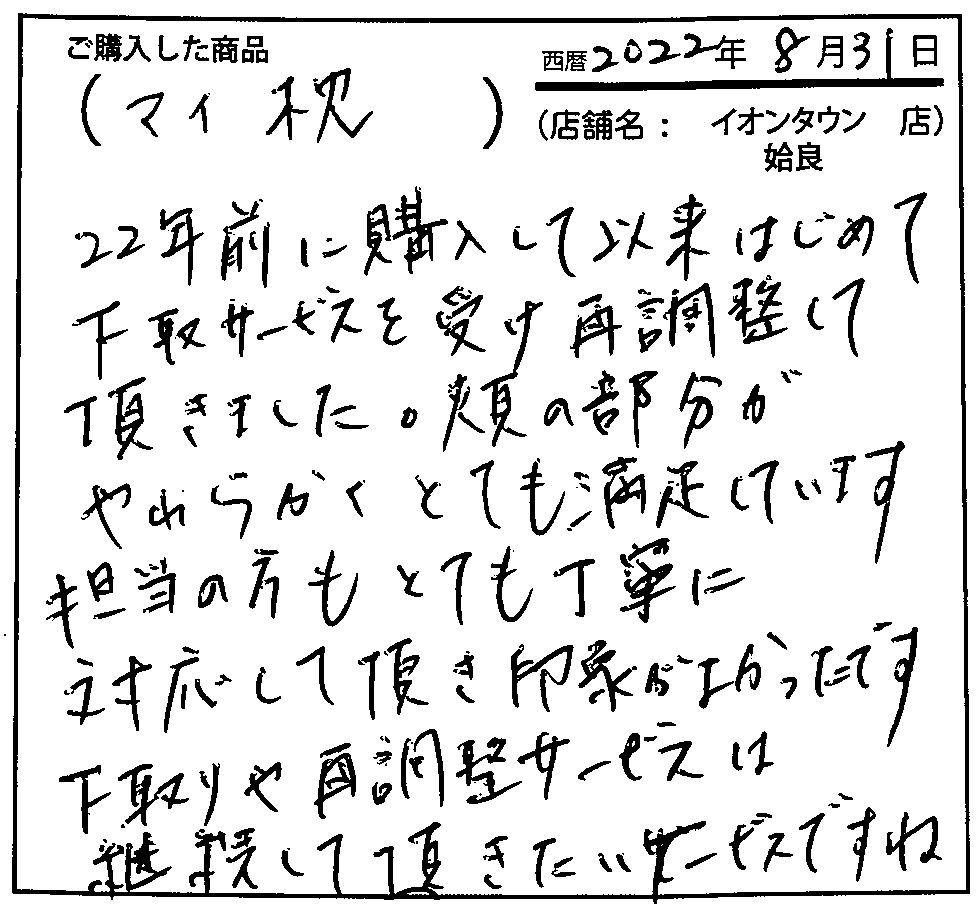 ご購入した商品
西暦2022年 8月31日
(マイ 枕 )
(店舗名: イオンタウン 店)
姶良
22年前に購入して以来はじめて
下取サービスを受け再調整して
頂きました。頬の部分が
やわらかくとても満足しています
担当の方もとても丁寧に
対応して頂き印象がよかったです
下取りや再調整サービスは
継続して頂きたいサービスですね